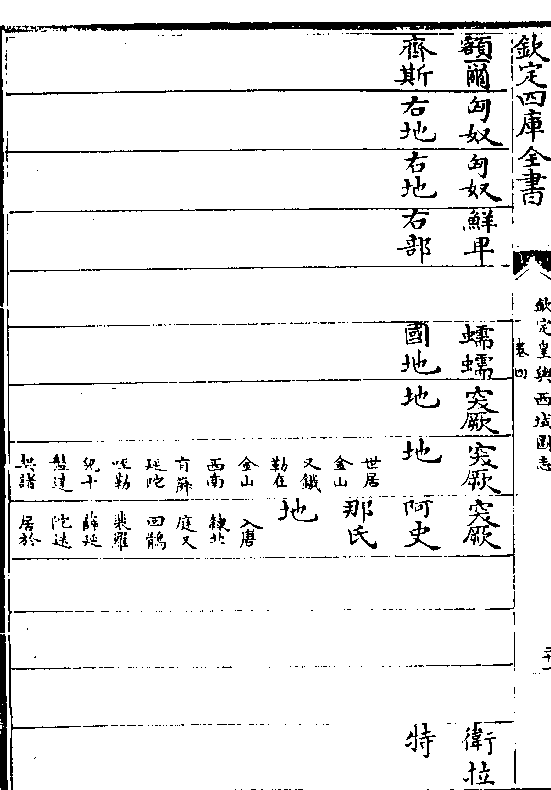 欽定四庫全書
欽定皇輿西域圖志
卷四
額爾
齊斯
匈奴
右地
匈奴
右地
鮮卑
右部
蠕蠕
國地
突厥
地
突厥
地
世居
金山
又鐵
勒在
金山
西南
有薛
延陀
咥勒
兒十
槃達
契諸
突厥
阿史
那氏
地
入唐
隸北
庭又
回鶻
裴羅
薛延
陀
居於
衛拉
特